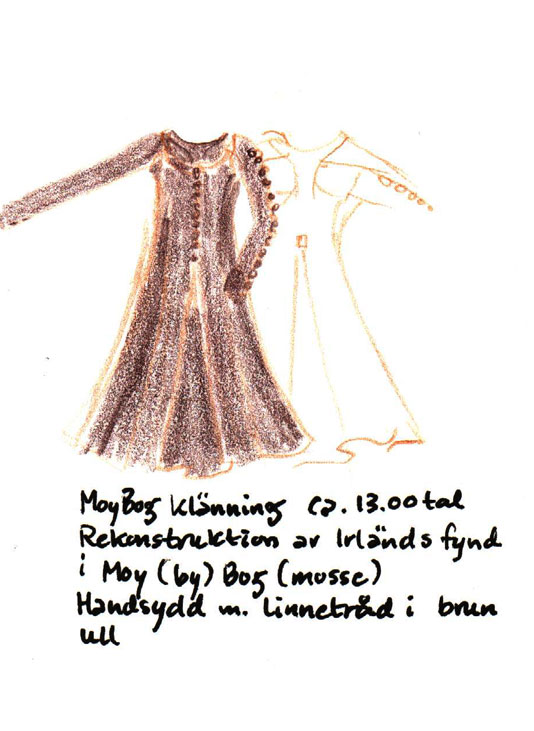 MoyBog klänning ca. 13.00 tal
Rekonstruktion av Irländs fynd
i Moy (by) Bog (mosse)
Handsydd m. linnetråd i brun
ull